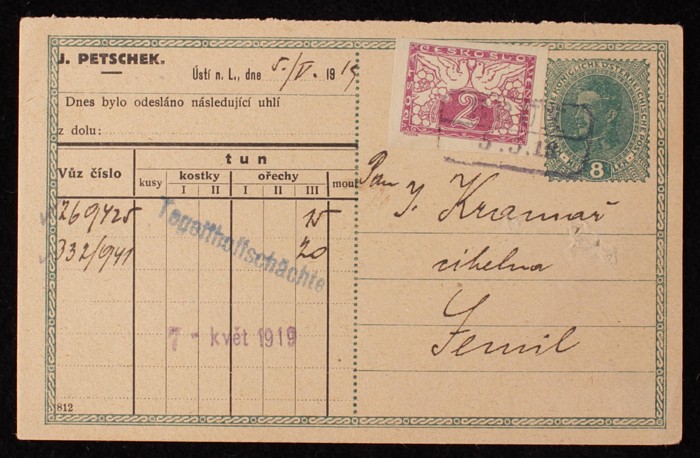 J. PETSCHEK.
Ústí n. L., dne 5./V. 1919
Dnes bylo odesláno následující uhlí
z dolu:
Vůz číslo
tun
kusy
kostky
ořechy
mour
I II I II III
269425 15
332/941 20
Tegetthoffschächte
7 - květ 1919
812
ČESKOSLOVENSKÁ
2
8
Pan J. Kramář
cihelna
Semil